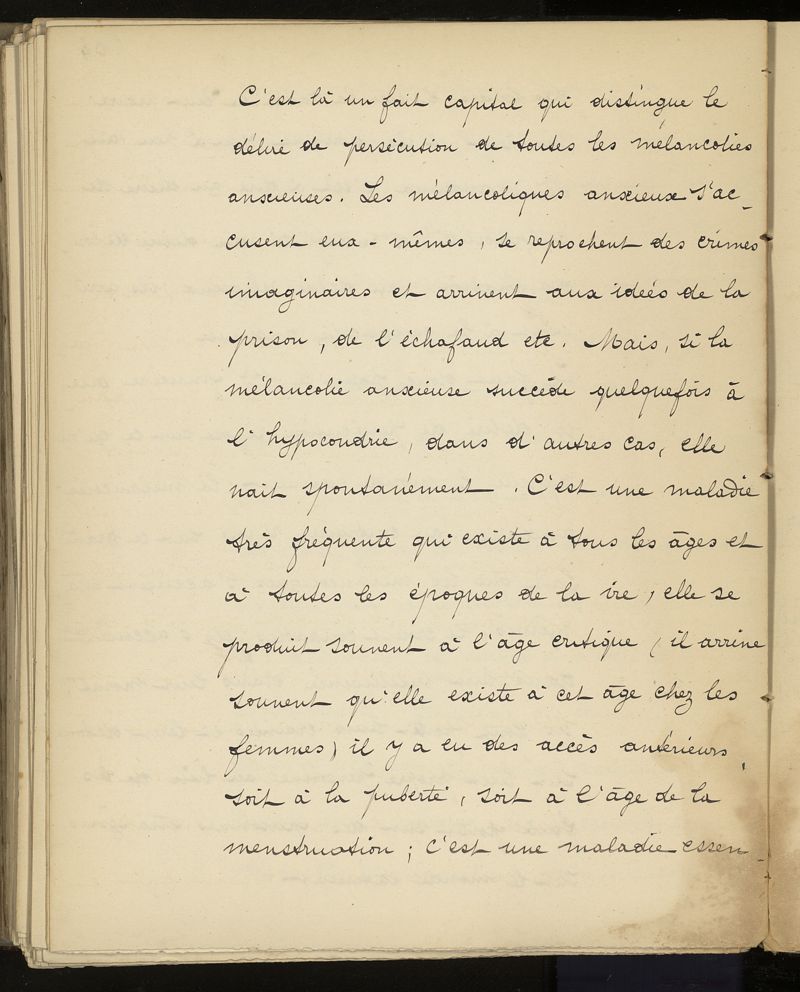 C'est là un fait capital qui distingue le
délire de persécution de toutes les mélancolies
anxieuses. Les mélancoliques anxieux s'ac-
cusent eux-mêmes, se reprochent des crimes
imaginaires et arrivent aux ideés de la
prison, de l'échafaud etc. Mais, si la
mélancolie anxieuse succède quelquefois à
l'hypocondrie, dans d'autres cas, elle
nait spontanément. C'est une maladie
très fréquente qui existe à tous les âges et
à toutes les époques de la vie, elle se
produit souvent à l'âge critique (il arrive
souvent qu'elle existe à cet âge chez les
femmes) il y a eu des accès antérieurs,
soit à la puberté, soit à l'âge de la
menstruation; c'est une maladie essen-